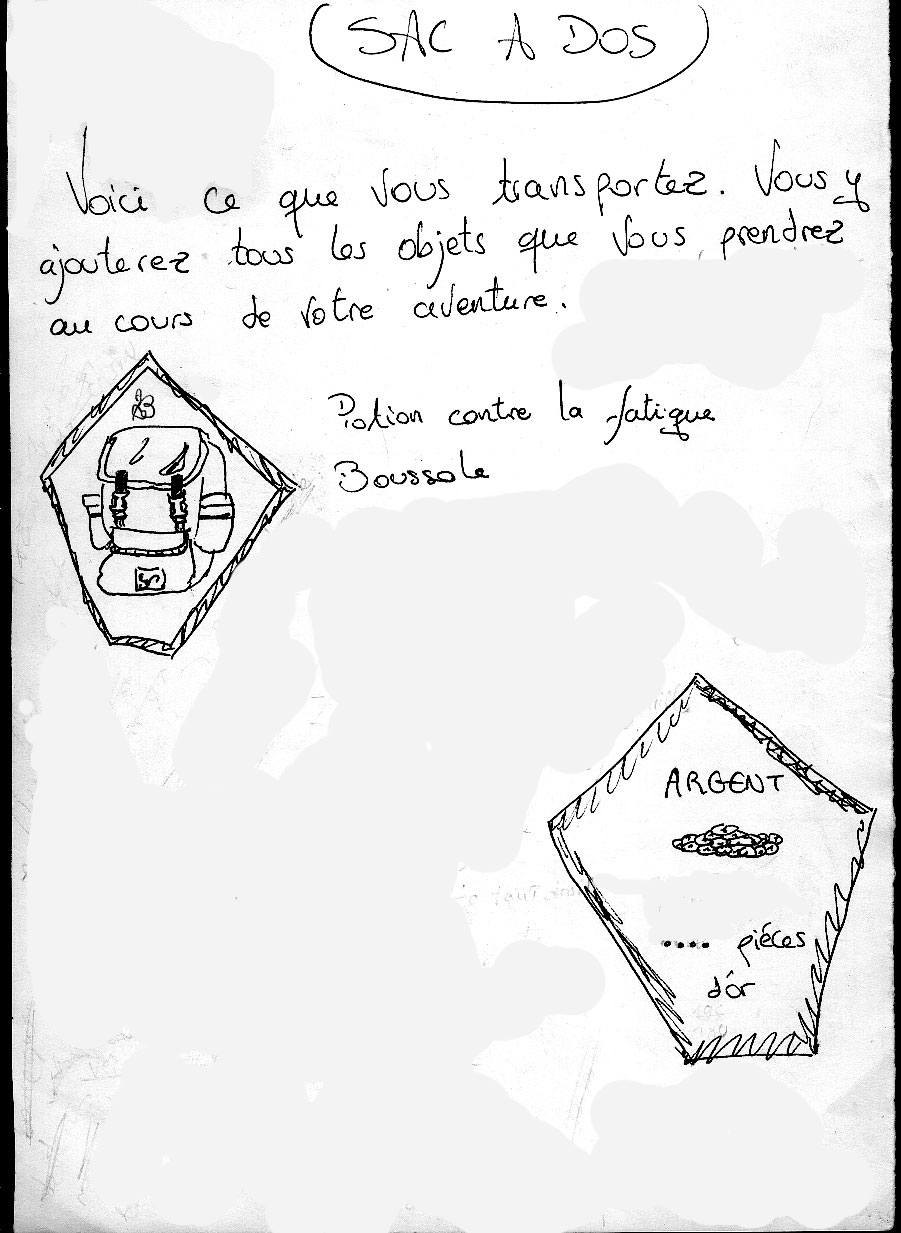 SAC A DOS
Voici ce que vous transportez. Vous y
ajouterez tous les objets que vous prendrez
au cours de votre aventure.
Potion contre la fatigue
Boussole
ARGENT
.... piéces
d'or